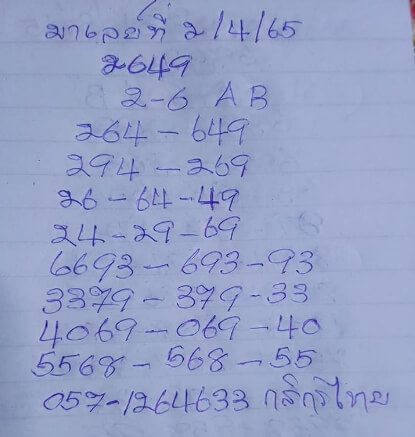 มาเลย์ที่ 2/4/65
2649
2-6 AB
264-649
294-269
26-64-49
24-29-69
6693-693-93
3379-379-33
4069-069-40
5568-568-55
057-1264633 กสิกรไทย